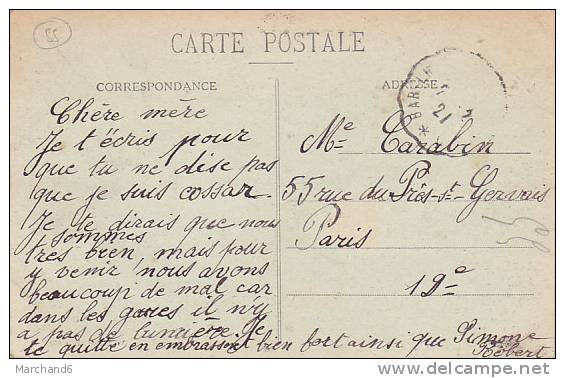 22
CARTE POSTALE
CORRESPONDANCE
ADRESSE
Chère mère
Je t'écris pour
que tu ne dise pas
que je suis cossar.
Je te dirais que nous
sommes
tres bien, mais pour
y venir nous avons
beaucoup de mal car
dans les gares il n'y
a pas de lumière. Je
te quitte en embrassant bien fort ainsi que Simone
Robert
Me Carabin
55 rue du Prés-St-Gervais
Paris
19e
21
Marchand6
delcampe.net